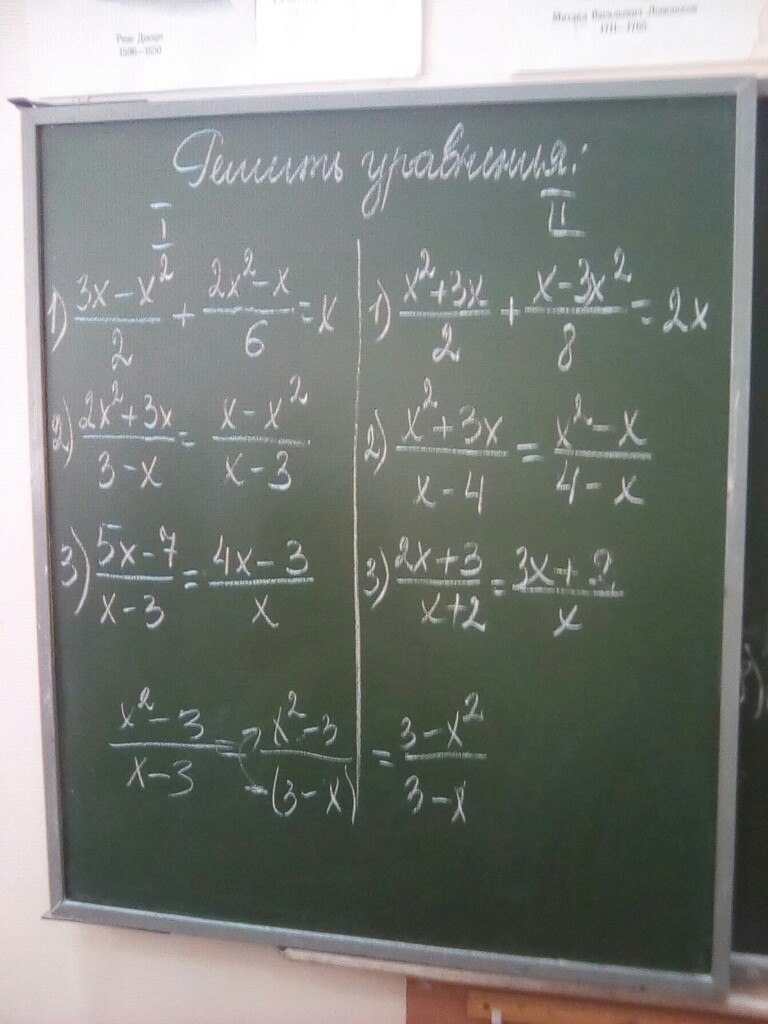 Рене Декарт
1596–1650
Михаил Васильевич Ломоносов
1711–1765
Решить уравнения:
I
1) (3x − x²)/2 + (2x² − x)/6 = x
2) (2x² + 3x)/(3 − x) = (x − x²)/(x − 3)
3) (5x − 7)/(x − 3) = (4x − 3)/x
II
1) (x² + 3x)/2 + (x − 3x²)/8 = 2x
2) (x² + 3x)/(x − 4) = (x² − x)/(4 − x)
3) (2x + 3)/(x + 2) = (3x + 2)/x
(x² − 3)/(x − 3) = − (x² − 3)/−(3 − x) = (3 − x²)/(3 − x)